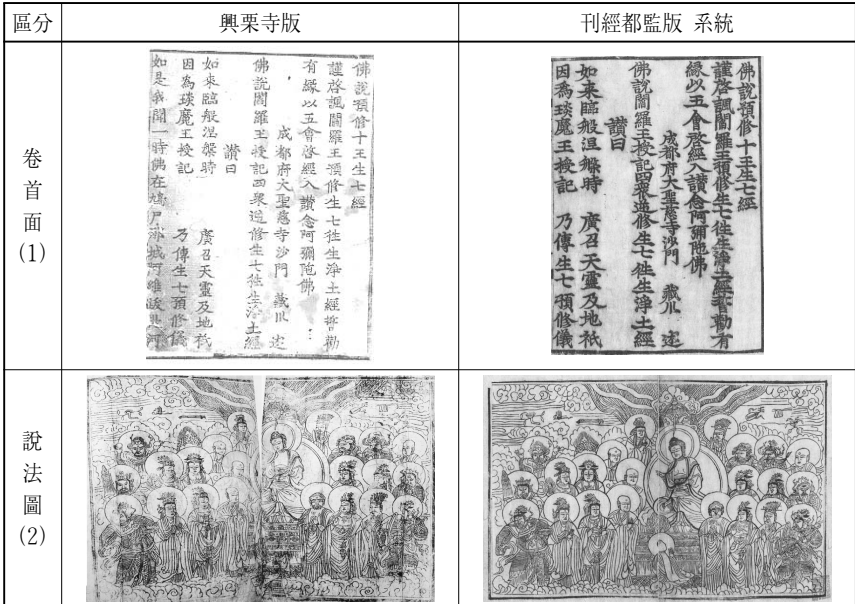 區分 興栗寺版 刊經都監版 系統
卷首面
(1)
佛說預修十王生七經
謹啓諷閻羅王預修生七徃生淨土經誓勸
有緣以五會啓經入讚念阿彌陁佛
成都府大聖慈寺沙門 藏川 述
佛說閻羅王授記四衆逆修生七徃生淨土經
讚曰
如來臨般涅槃時 廣召天靈及地祇
因爲琰魔王授記 乃傳生七預修儀
如是我聞一時佛在鳩尸那城阿維跋提河
佛說預修十王生七經
謹啓諷閻羅王預修生七徃生淨土經誓勸有
緣以五會啓經入讚念阿彌陁佛
成都府大聖慈寺沙門 藏川 述
佛說閻羅王授記四衆逆修生七徃生淨土經
讚曰
如來臨般涅槃時 廣召天靈及地祇
因爲琰魔王授記 乃傳生七預修儀
說法圖
(2)